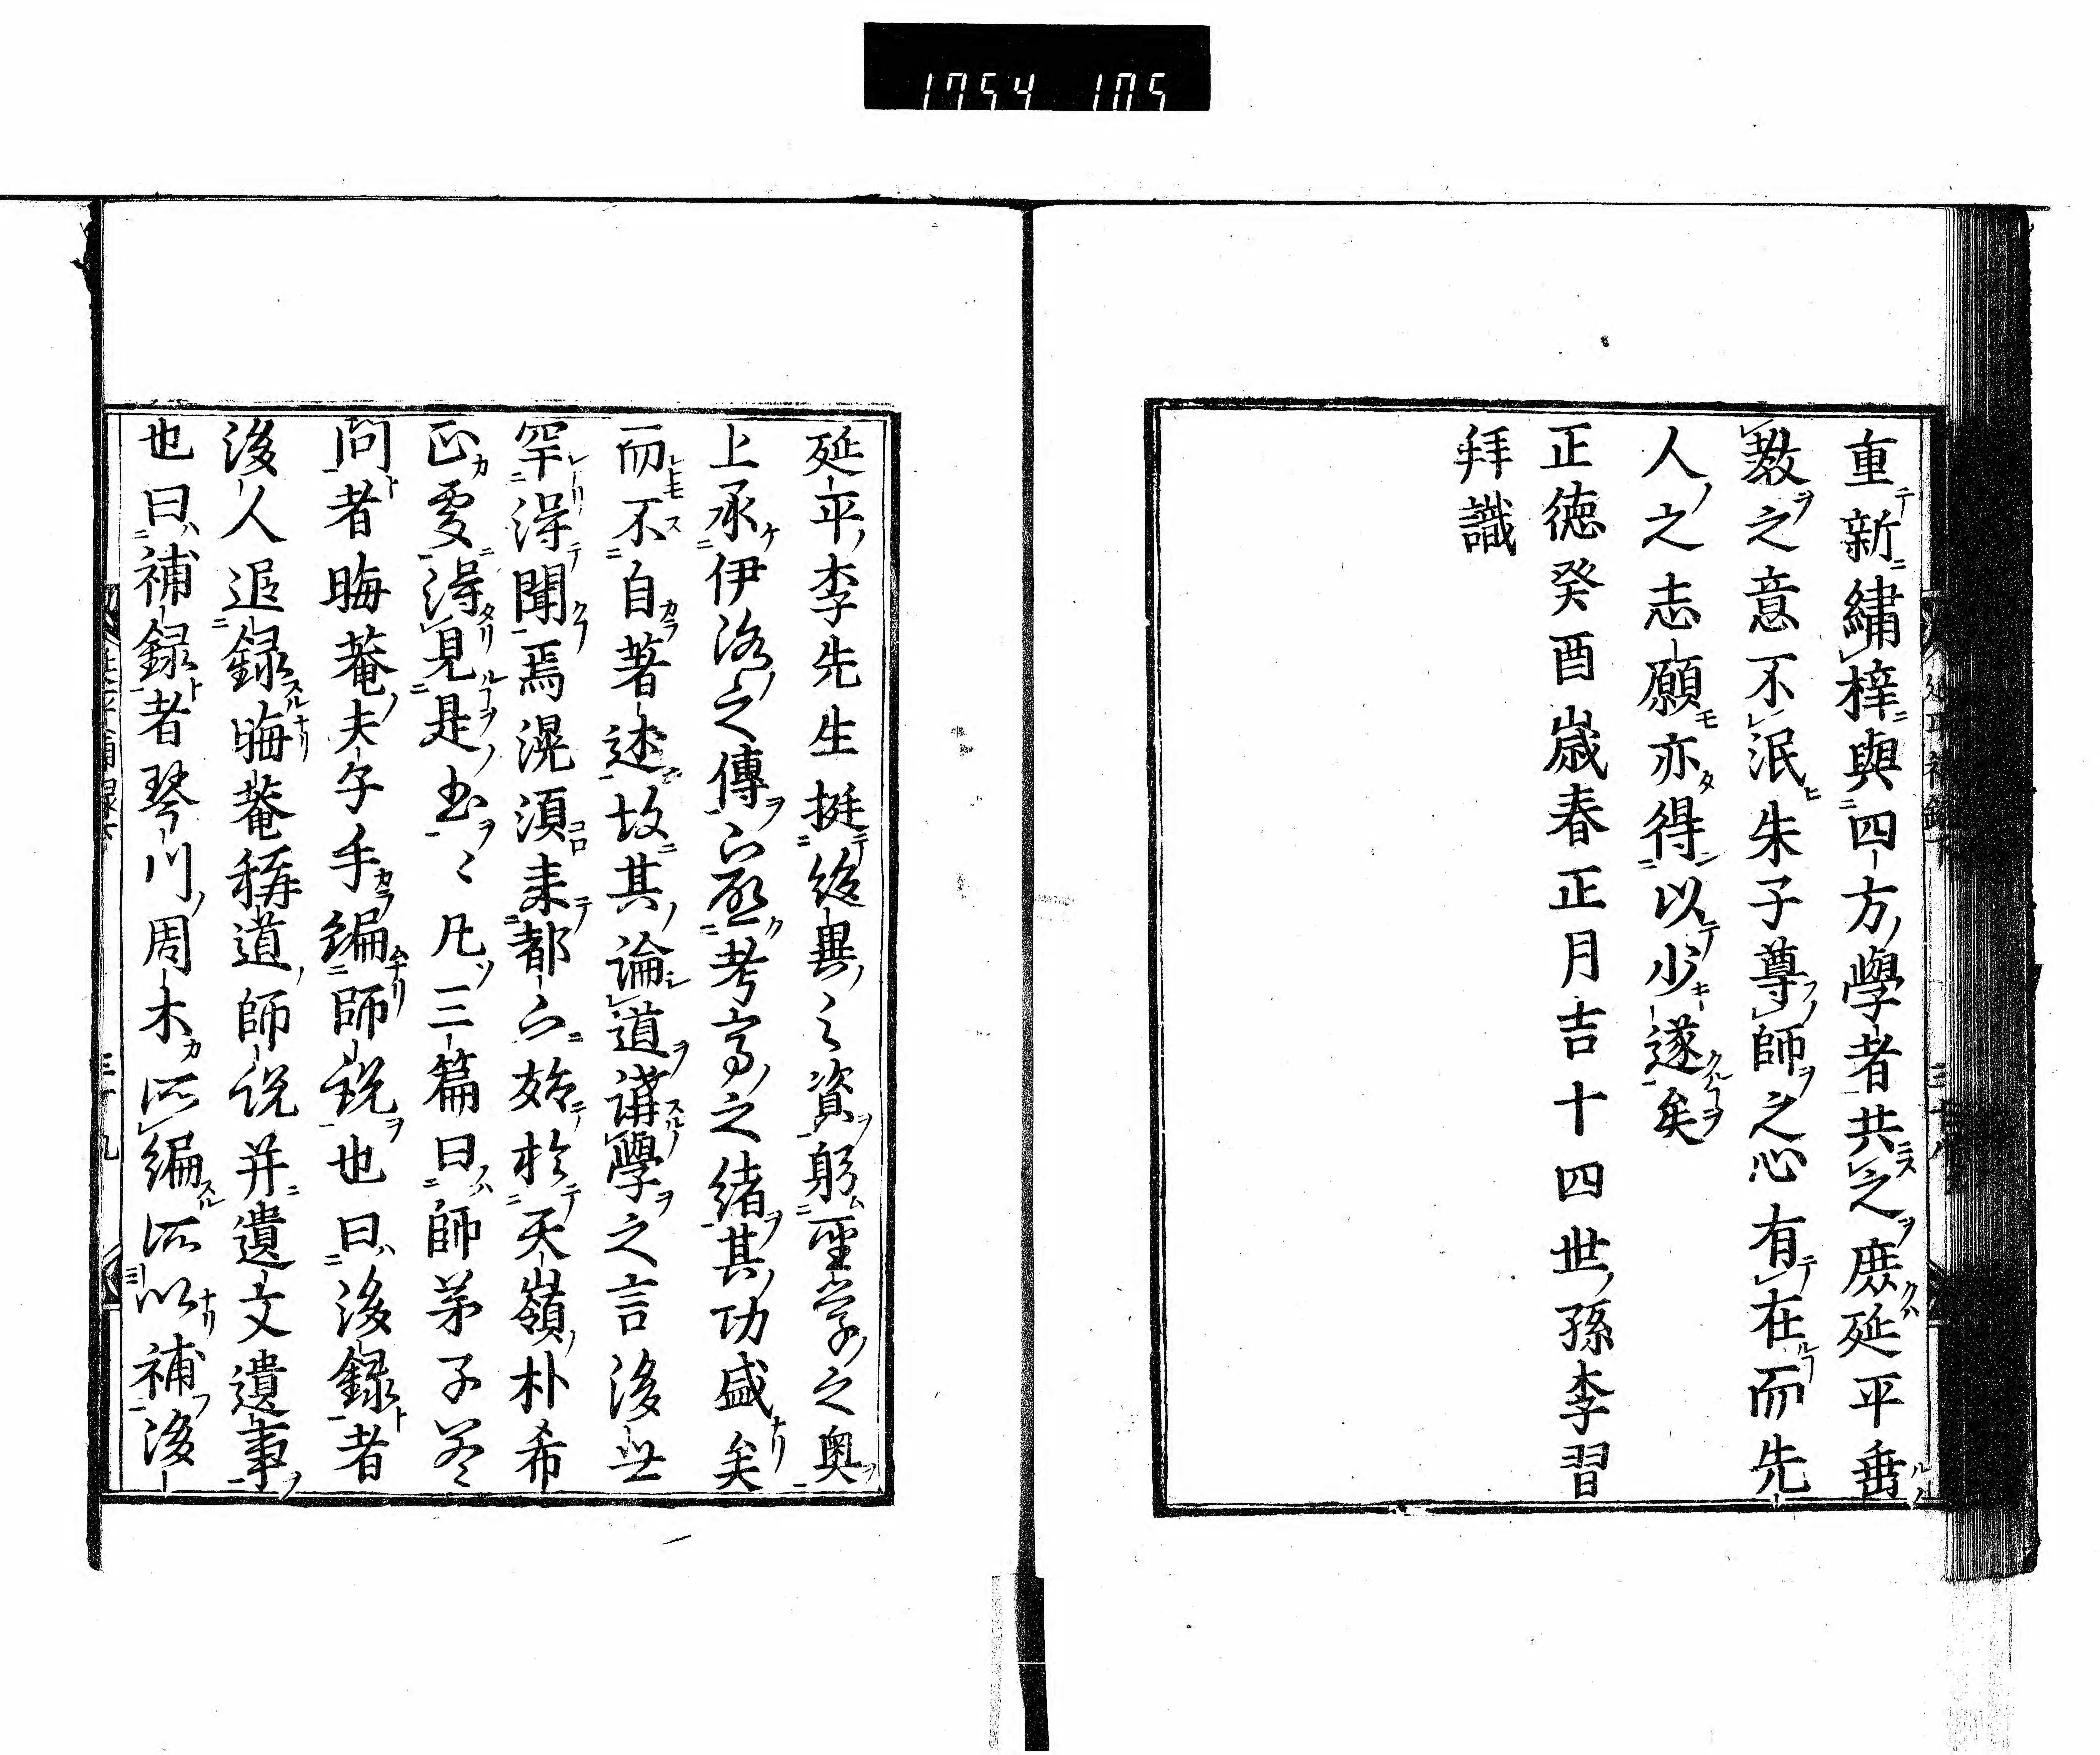 1754 105
重新繡梓與四方學者共之庶延平垂
教之意不泯朱子尊師之心有在而先
人之志願亦得以少遂矣
正德癸酉歳春正月吉十四世孫李習
拜識
延平李先生挺絶異之資躬聖学之奥
上承伊洛之傳下啓考亭之緒其功盛矣
而不自著述故其論道講學之言後世
罕得聞焉滉須来都下始於天嶺朴希
正處得見是書々凡三篇曰師苐子答
問者晦菴夫子手編師説也曰後録者
後人追録晦菴稱道師説并遺文遺事
也曰補録者琴川周木所編所以補後